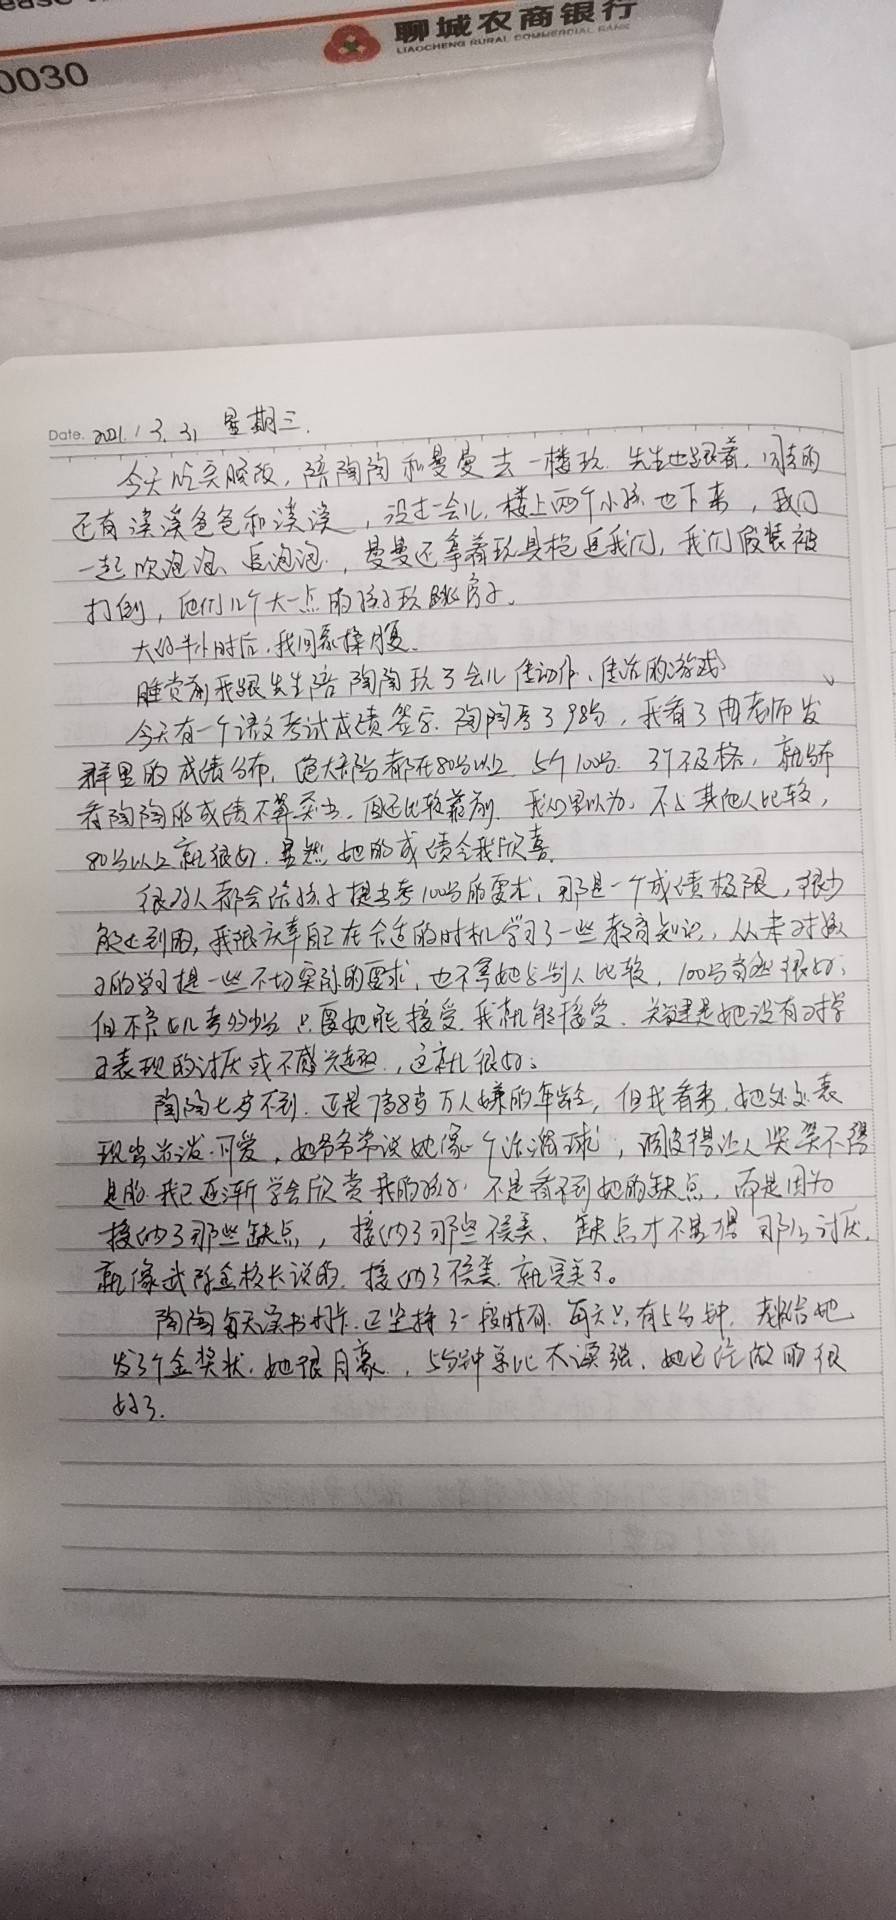 ease
聊城农商银行
LIAOCHENG RURAL COMMERCIAL BANK
0030
Date. 2021.3.31 星期三.
今天吃完晚饭,陪陶陶和曼曼去一楼玩.先生也跟着,同去的
还有溪溪爸爸和溪溪,没过一会儿,楼上两个小孩也下来,我们
一起吹泡泡、追泡泡.,曼曼还拿着玩具枪追我们,我们假装被
打倒,他们几个大一点的孩子玩跳房子。
大约半小时后,我回家揉腹.
睡觉前我跟先生陪陶陶玩了会儿传动作、传话的游戏
今天有一个语文考试成绩签字.陶陶考了98分,我看了曲老师发
群里的成绩分布,绝大部分都在80分以上 5个100分.3个不及格,就分布
看陶陶的成绩不算突出,但还比较靠前.我心里以为,不与其他人比较,
80分以上就很好.显然她的成绩令我欣喜.
很多人都会给孩子提出考100分的要求,那是一个成绩极限,很少
能达到的,我很庆幸自己在合适的时机学习了一些教育知识,从未对她
的学习提一些不切实际的要求,也不拿她与别人比较,100分当然很好;
但不管她考多少分 只要她能接受.我就能接受.关键是她没有对学
习表现的讨厌或不感兴趣.,这就很好;
陶陶七岁不到.正是7岁8岁万人嫌的年龄,但我看来,她处处表
现出活泼.可爱,她爷爷常说她像个"活猴球",调皮得让人哭笑不得
是的.我已逐渐学会欣赏我的孩子.不是看不到她的缺点,而是因为
接纳了那些缺点,接纳了那些不完美、缺点才不显得那么讨厌.
就像武际金校长说的.接纳了不完美.就完美了。
陶陶每天读书打卡.已坚持了一段时间.每天只有5分钟.老师给她
发了个金奖状.她很自豪.,5分钟总比不读强.她已经做的很
好了.